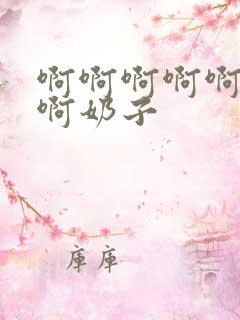 啊啊啊啊啊
啊奶子
庫庫